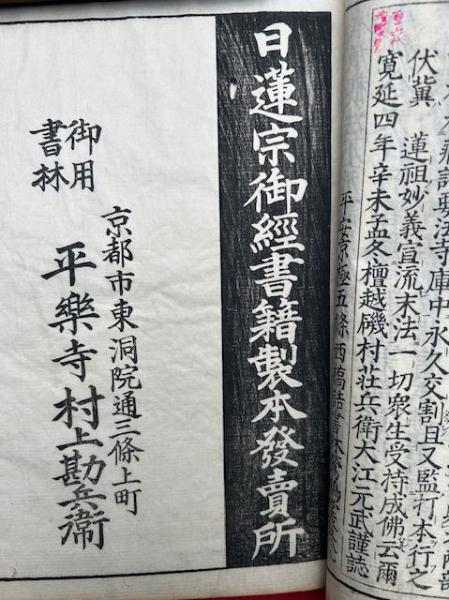 要法寺庫中永久交割且又監打本行之
伏冀 蓮祖妙義宣流末法一切衆生受持成佛云爾
寛延四年辛未孟冬檀越磯村荘兵衛大江元武謹誌
平安京極五條西橋詰書林
日蓮宗御經書籍製本發賣所
御用
書林
京都市東洞院通三條上町
平樂寺村上勘兵衛